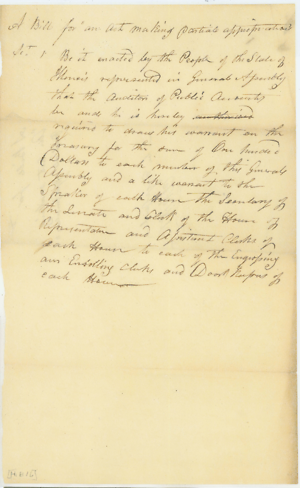 A Bill for an act making partial appropriations
St. 1 Be it enacted by the People of the State of
Illinois represented in General Assembly
that the Auditor of Public Accounts
be and he is hereby authorised
required to draw his warrant on the
treasury for the sum of One hundred
Dollars to each member of this General
Assembly and a like warrant to the
Speaker of each House the Secretary of
the Senate and Clerk of the House of
Representatives and Assistant Clerks of
each House to each of the Engrossing
and Enrolling Clerks and Door Keepers of
each House